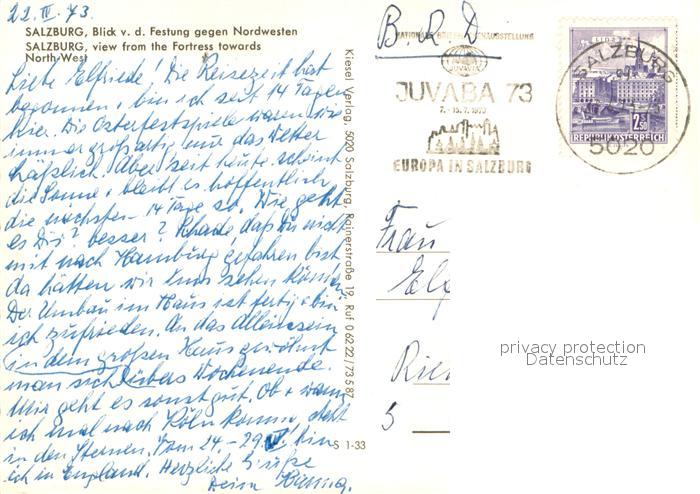 22. IV. 73
SALZBURG, Blick v. d. Festung gegen Nordwesten
SALZBURG, view from the Fortress towards
North-West
Liebe Elfriede! Die Reisezeit hat
begonnen, bin ich seit 14 Tagen
hier. Die Osterfestspiele waren wie
immer großartig, nur das Wetter
häßlich. Aber seit heute scheint
die Sonne, bleibt es hoffentlich
die nächsten 14 Tage so. Wie geht
es Dir? besser? Schade, daß Du nicht
mit nach Hamburg gefahren bist
da hätten wir uns sehen können.
Der Umbau im Haus ist fertig + bin
ich zufrieden. An das Alleinsein
in dem großen Haus gewöhnt
man sich übers Wochenende.
Mir geht es sonst gut. Ob + wann
ich mal nach Köln komme, steht
in den Sternen. Vom 24. – 29. V. bin
ich in England. Herzliche Grüße
Deine
Kiesel Verlag, 5020 Salzburg, Rainerstraße 19, Ruf 0 62 22 / 73 5 87
S 1-33
B. R. D
NATIONALE BRIEFMARKENAUSSTELLUNG
JUVABA 73
7.-15.7.1973
EUROPA IN SALZBURG
SALZBURG
5020
2.50
REPUBLIK ÖSTERREICH
Frau
Elf
Rie
5
privacy protection
Datenschutz